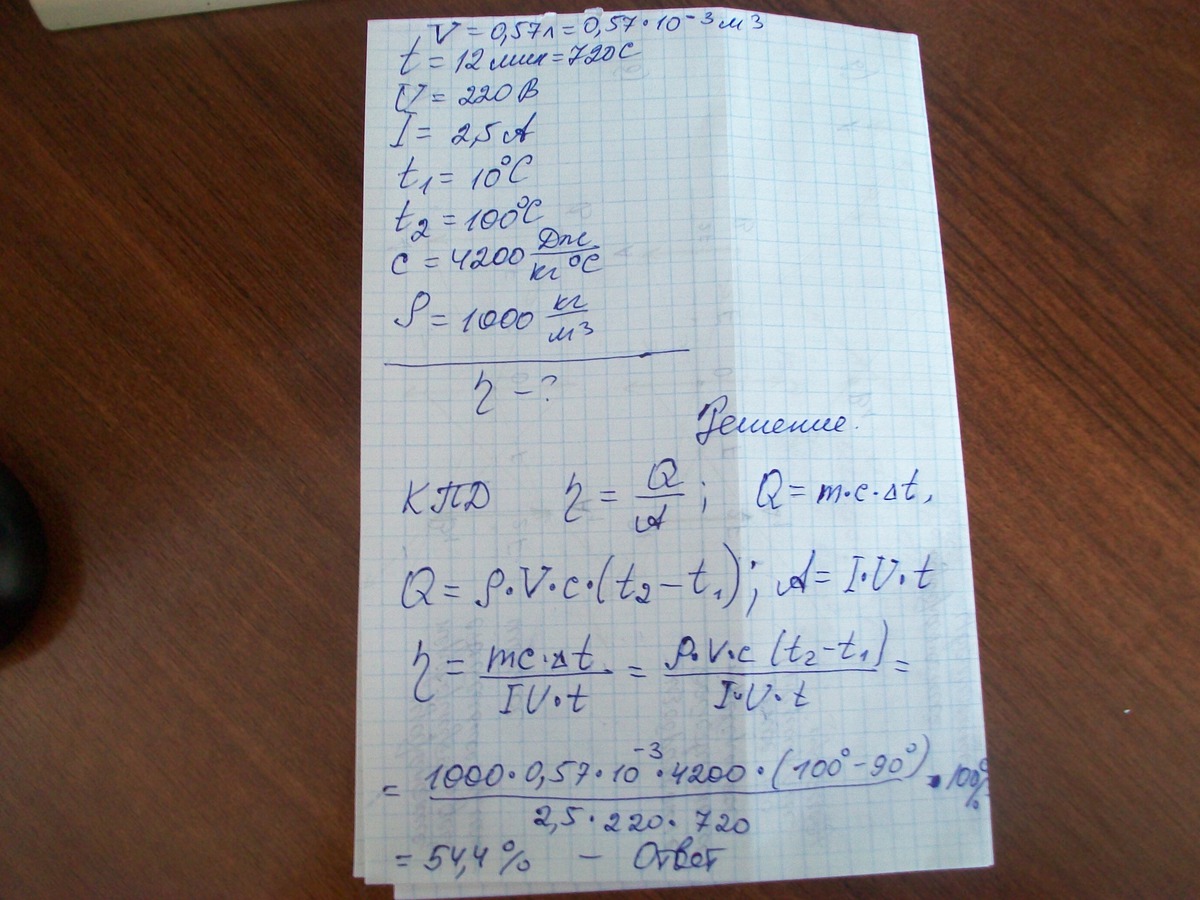 V = 0,57л = 0,57·10⁻³ м³
t = 12 мин = 720 С
U = 220 В
I = 2,5 А
t₁ = 10°C
t₂ = 100°C
c = 4200 Дж/кг°С
ρ = 1000 кг/м³
η – ?
Решение.
КПД η = Q/A ; Q = m·c·Δt,
Q = ρ·V·c·(t₂ – t₁); A = I·U·t
η = mc·Δt/IU·t = ρ·V·c (t₂–t₁)/I·U·t =
= 1000·0,57·10⁻³·4200·(100°–90°)/2,5·220·720 · 100%
= 54,4% – Ответ